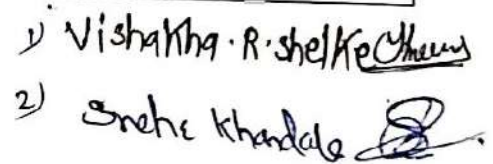 1) Vishakha. R. shelke
2) Snehe Khandale